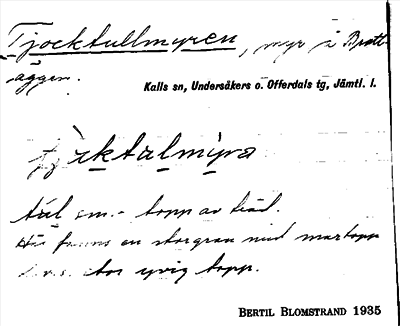 Tjocktullmyren, myr å Bratt-
äggen.
Kalls sn, Undersåkers o. Offerdals tg, Jämtl. l.
tjɔktalmyra
tal sm. topp av träd.
Här fanns en storgran med martopp
d.v.s. stor yvig topp.
BERTIL BLOMSTRAND 1935